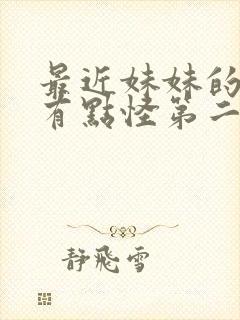 最近妹妹的
有點怪第二
静飛雪